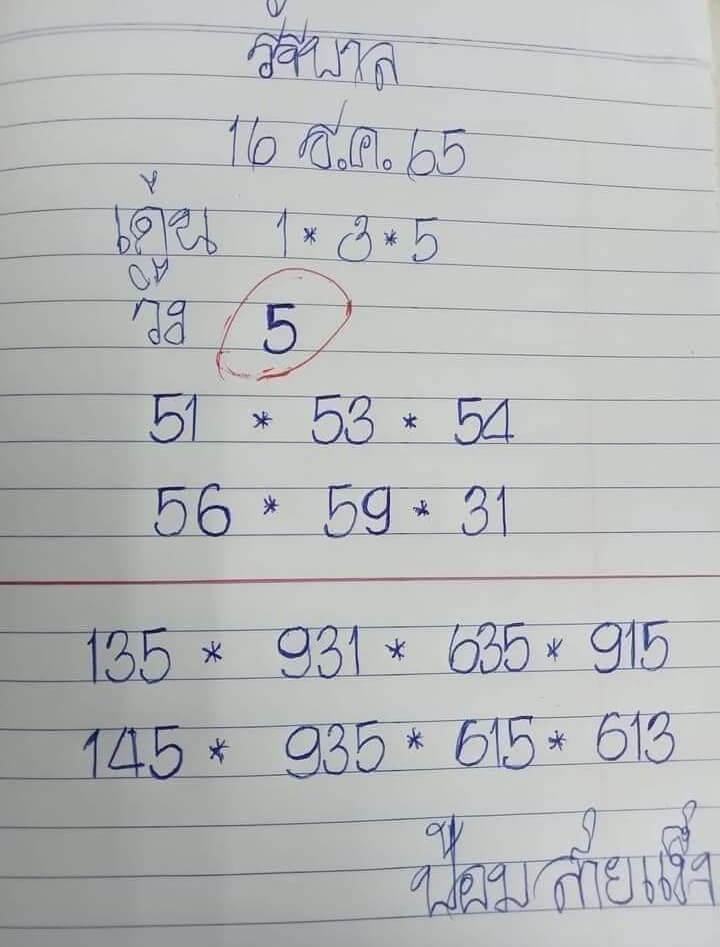 รัฐบาล
16 ส.ค. 65
เด่น 1 * 3 * 5
วิ่ง 5
51 * 53 * 54
56 * 59 * 31
135 * 931 * 635 * 915
145 * 935 * 615 * 613
ป้อม สาย